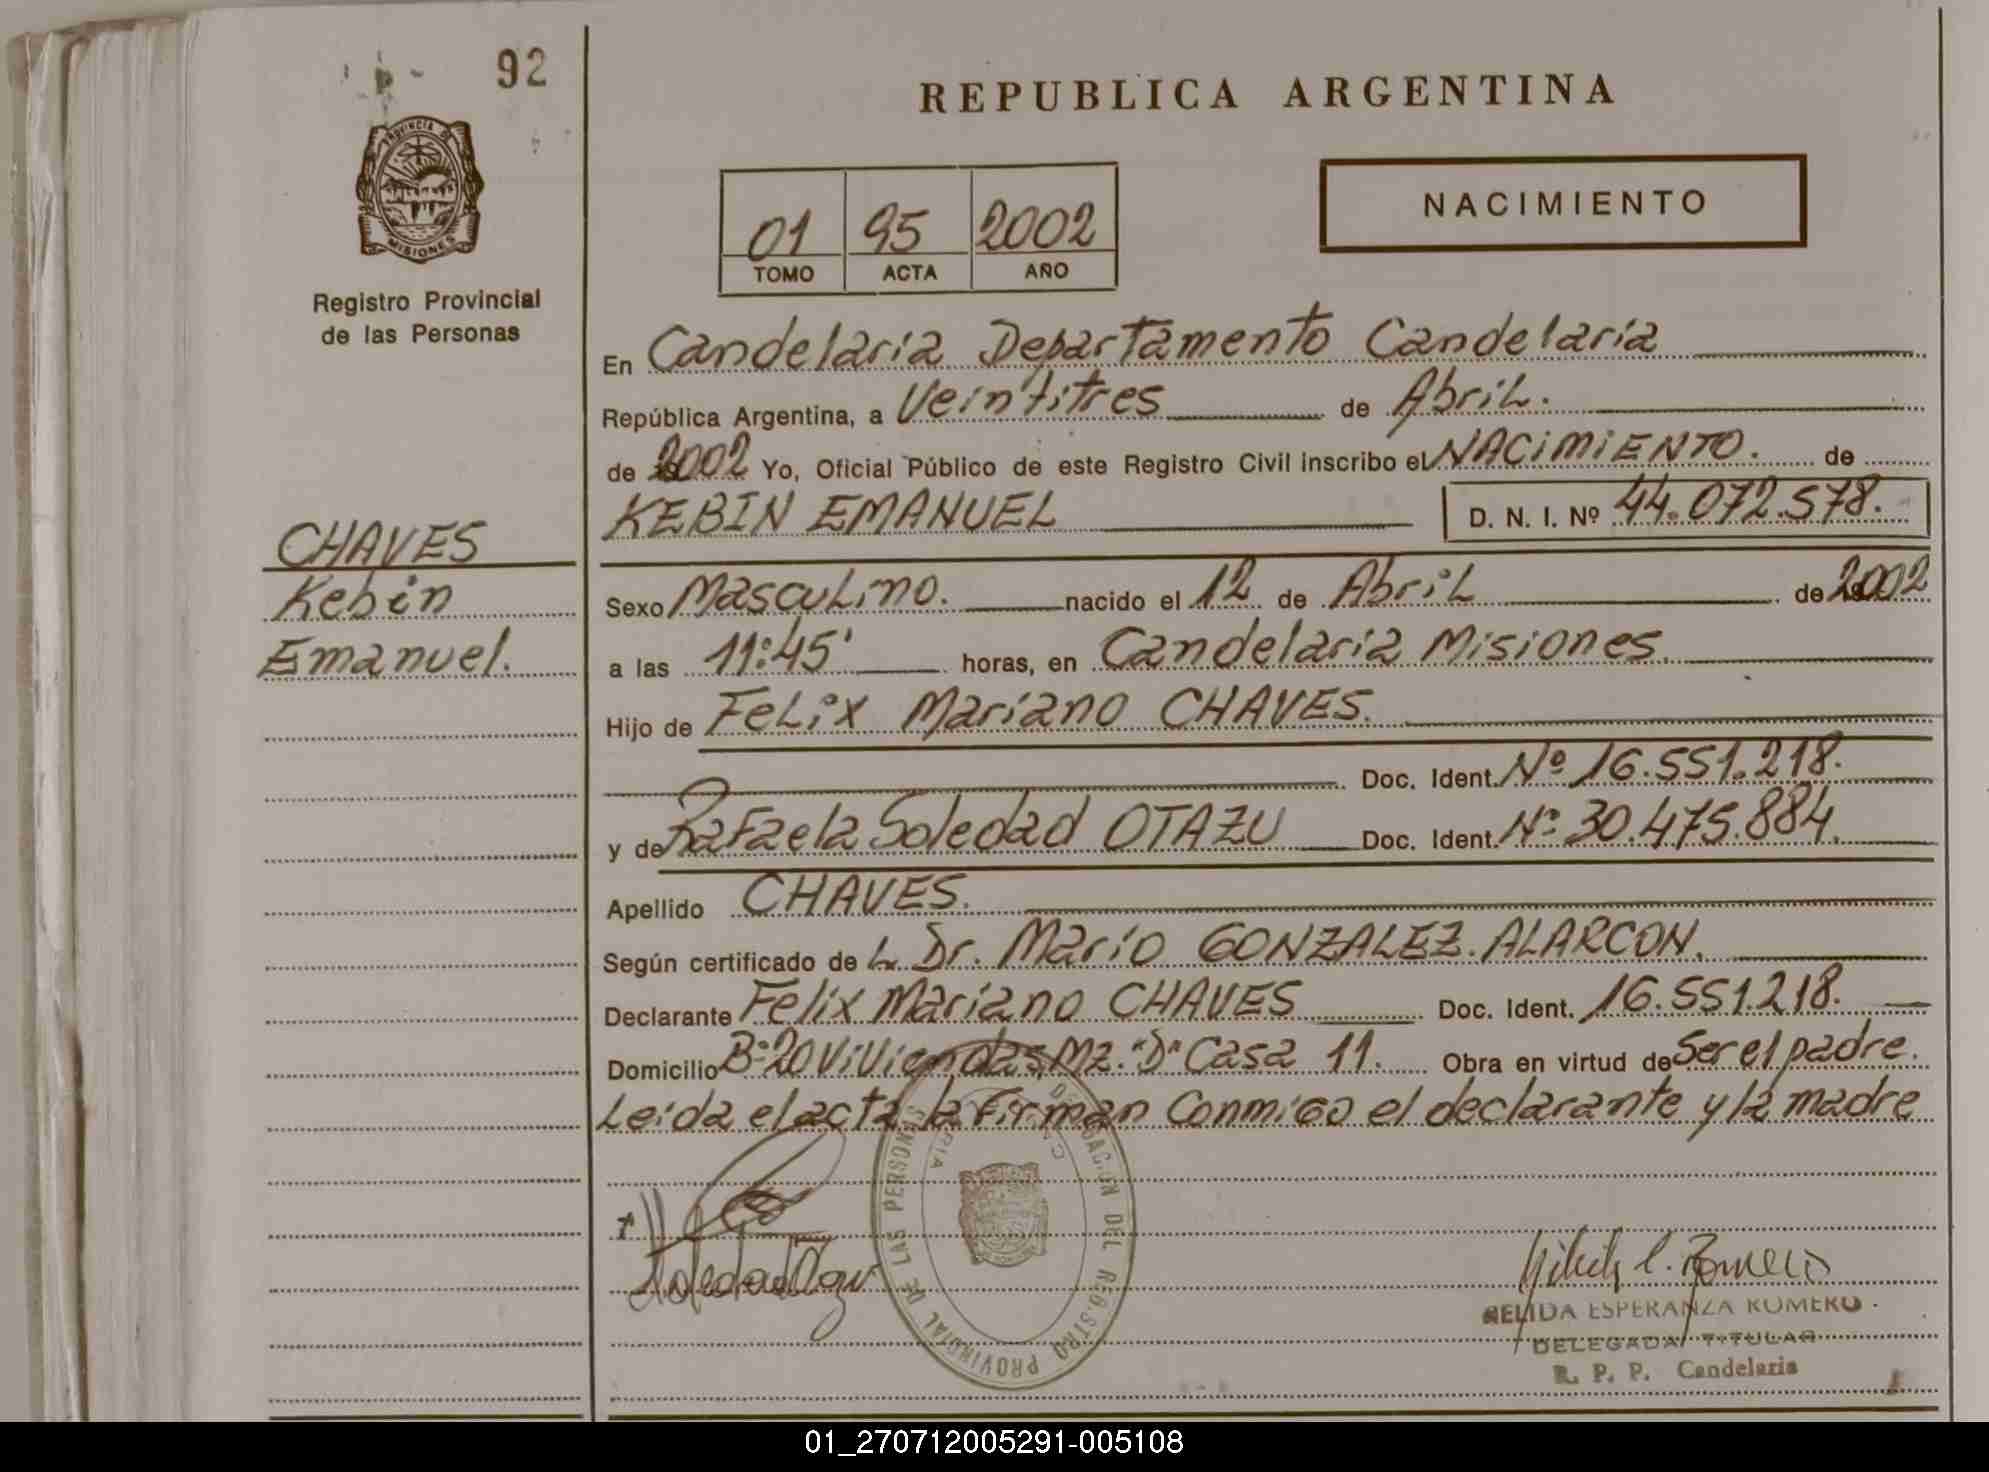 92
PROVINCIA DE
MISIONES
Registro Provincial
de las Personas
CHAVES
Kebin
Emanuel.
REPUBLICA ARGENTINA
01 95 2002
TOMO ACTA AÑO
NACIMIENTO
En Candelaria Departamento Candelaria
República Argentina, a Veintitres de Abril.
de 2002 Yo, Oficial Público de este Registro Civil inscribo el NACIMIENTO. de
KEBIN EMANUEL D. N. I. Nº 44.072.578.
Sexo Masculino. nacido el 12 de Abril de 2002
a las 11:45' horas, en Candelaria Misiones.
Hijo de Felix Mariano CHAVES.
Doc. Ident. Nº 16.551.218.
y de Rafaela Soledad OTAZU Doc. Ident. Nº 30.475.884.
Apellido CHAVES.
Según certificado de L Dr. Mario GONZALEZ ALARCON.
Declarante Felix Mariano CHAVES Doc. Ident. 16.551.218.
Domicilio Bº 20 Viviendas Mz. "D" Casa 11. Obra en virtud de Ser el padre.
Leida el acta la firman Conmigo el declarante y la madre
DELEGACION DEL REGISTRO PROVINCIAL DE LAS PERSONAS
NELIDA ESPERANZA ROMERO
DELEGADA TITULAR
R. P. P. Candelaria
01_270712005291-005108